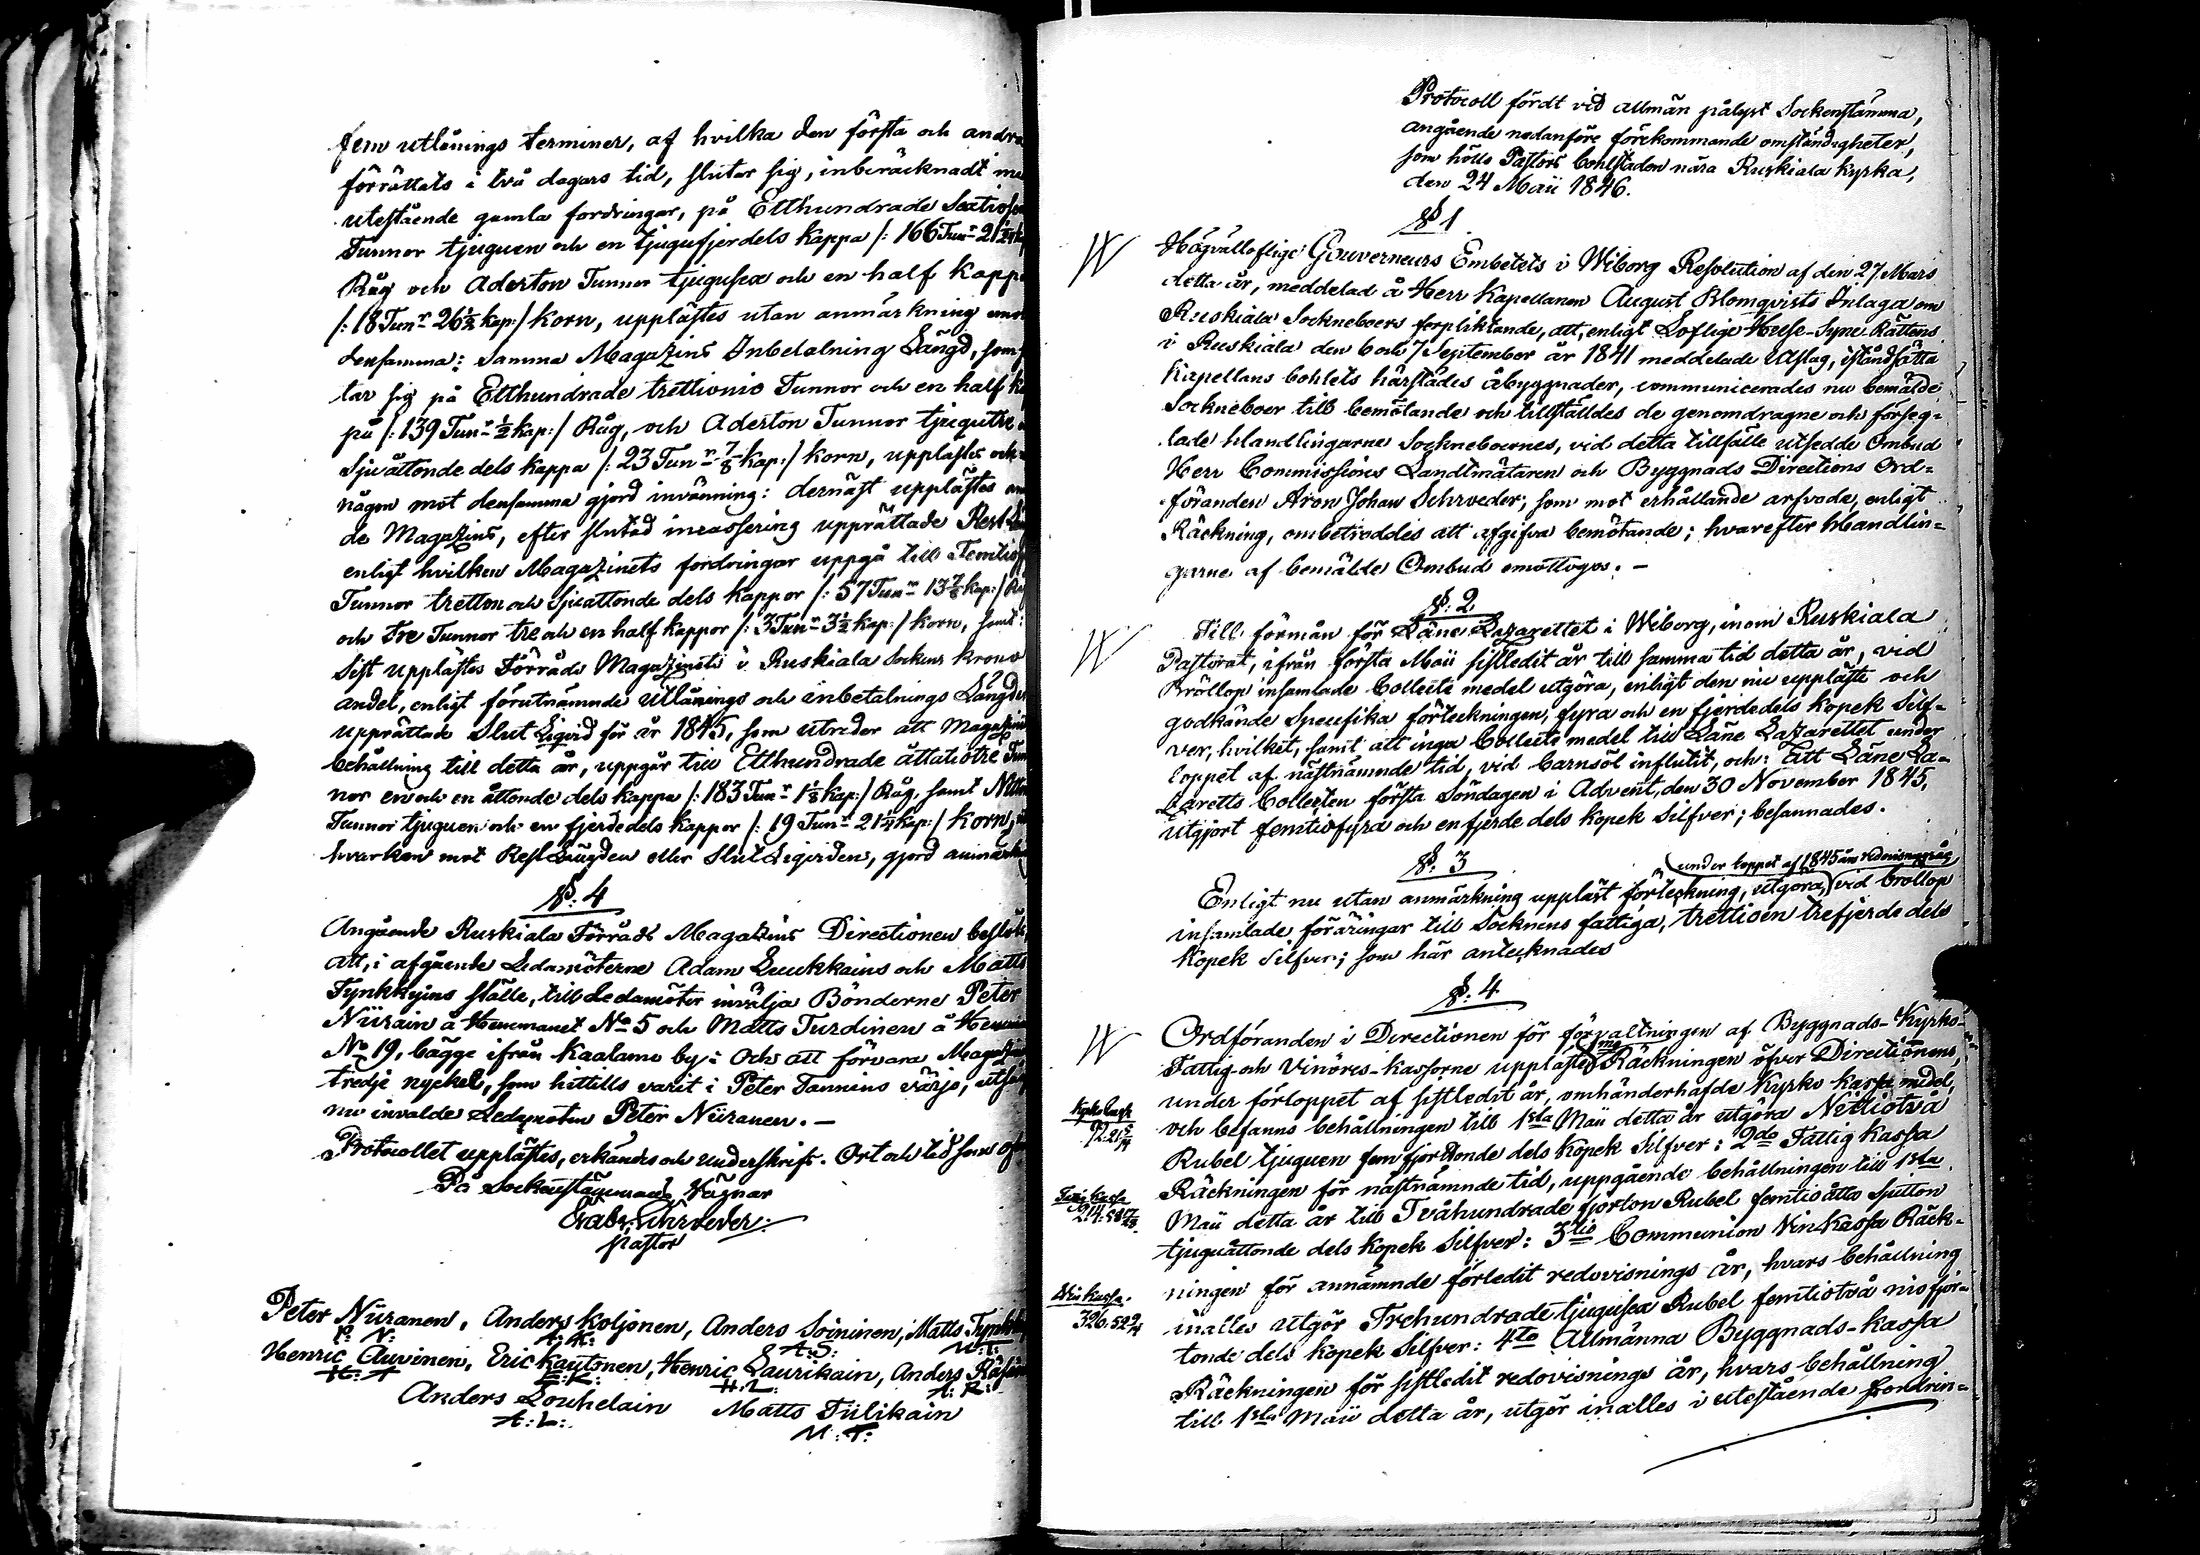 fem utlånings terminer, af hvilka den första och andra
förrättats i två dagars tid, slutar sig, inberäcknadt
utestående gamla fordringar, på Etthundrade Sextiosex
Tunnor tjuguen och en tjugufjerdels kappa /: 166 Tunr 21 1/24
Råg och Aderton Tunnor tjugusex och en half kapp
/: 18 Tunr 26 1/2 kap:/ korn, upplästes utan anmärkning emot
densamma: samma Magazins Inbetalning Längd, som
tar sig på Etthundrade trettionio Tunnor och en half
på /: 139 Tunr 1/2 kap:/ Råg, och Aderton Tunnor tjugutre
Sjuåttonde dels kappa /: 23 Tunr 7/8 kap:/ korn, upplästes och
någon mot densamma gjord invänning: dernäst upplästes
de Magazins, efter slutad incassering upprättade Rest
enligt hvilken Magazinets fordringar uppgå till Femtio
Tunnor tretton och Sjuåttonde dels kappor /: 57 Tunr 13 7/8 kap:/
och Tre Tunnor tre och en half kappor /: 3 Tunr 3 1/2 kap:/ korn, samt
Sist upplästes Förråds Magazinets i Ruskiala Sockens krono
andel, enligt förutnämnde Utlånings och inbetalnings Längder
upprättade Slut Liqvid för år 1845, som utreder att Magazinets
behållning till detta år, uppgår till Etthundrade åttatiotre Tun
nor en och en åttonde dels kappa /: 183 Tunr 1 1/8 kap:/ Råg, samt
Tunnor tjuguen och en fjerdedels kappor /: 19 Tunr 21 1/4 kap:/ korn,
hvarken mot Rest Längden eller Slut Liqviden, gjord anmärk
§: 4
Angående Ruskiala Förråds Magazins Directionen beslöts,
att, i afgående Ledamöterne Adam Leukkains och Matts
Tynkkyins ställe, till Ledamöter invälja Bönderne Peter
Niirain å Hemmanet No 5 och Matts Turdinen å
No 19, bägge ifrån Kaalamo by: Och att förvara
tredje nyckel, som hittills varit i Peter Tannins värjo,
nu invalde Ledamoten Peter Niiranen. —
Protocollet upplästes, erkändes och underskrifs. Ort och tid som
På Sockenstämmans Vägnar
Gabr. Schroeder:
Pastor
Peter Niiranen, Anders Koljonen, Anders Soininen, Matts
P: N: A: K: A: S: M: T:
Henric Auvinen, Eric Kautonen, Henric Laurikain, Anders
H: A E: K: H: L: A: R:
Anders Louhelain Matts Tiilikain
A: L: M: T:
Protocoll fördt vid allmän pålyst Sockenstämma,
angående nedanföre förekommande omständigheter,
som hölls Pastors bohlstaden nära Ruskiala kyrka,
den 24 Maii 1846.
§ 1
Högvälloflige Gouverneurs Embetets i Wiborg Resolution af den 27 Mars
detta år, meddelad å Herr Kapellanen August Blomqvists Inlaga om
Ruskiala Sockneboers förpliktande, att, enligt Loflige Huse-Syne Rättens
i Ruskiala den 6 och 7 September år 1841 meddelade Utslag, iståndsätta
Kapellans bohlets härstädes åbyggnader, communicerades nu bemälde
Sockneboer till bemötande och tillställdes de genomdragne och förseg-
lade Handlingarne Socknebornes, vid detta tillfälle utsedde Ombud
Herr Commissions Landtmätaren och Byggnads Directions Ord-
föranden Aron Johan Schroeder; som mot erhållande arfvode, enligt
Räckning, ombetroddes att afgifva bemötande; hvarefter Handlin-
garne af bemälde Ombud emottogos. —
§: 2
Till förmån för Läne Lazarettet i Wiborg, inom Ruskiala
Pastorat, ifrån första Maii sistledit år till samma tid detta år, vid
Bröllop insamlade Collects medel utgöra, enligt den nu uppläste och
godkände Specifika förteckningen, fyra och en fjerdedels kopek Silf-
ver, hvilket, samt att inga Collects medel till Läne Lazarettet under
loppet af nästnämnde tid, vid barnsöl influtit, och: Ett Läne La-
zaretts Collecten första Söndagen i Advent, den 30 November 1845,
utgjort femtiofyra och en fjerde dels kopek Silfver; besannades.
§: 3
under loppet af 1845 års redovisningsår,
Enligt nu utan anmärkning uppläst förteckning, utgöra, vid bröllop
insamlade föräringar till Socknens fattiga, trettioen trefjerde dels
kopek Silfver; som här antecknades
§: 4
Ordföranden i Directionen för förvaltningen af Byggnads-Kyrko-
Fattig- och Vinöres-kassorne uppläste 1mo Räckningen öfver Directionens,
under förloppet af sistledit år, omhänderhafde Kyrko kassa medel,
och befanns behållningen till 1sta Maii detta år utgöra Nittiotvå
Kyrko Cassa
92.21 5/14
Rubel tjuguen fem fjortonde dels kopek Silfver: 2do Fattig kassa
Räckningen för nästnämnde tid, uppgående behållningen till 1sta
Fattig kassa
214.58 17/28
Maii detta år till Tvåhundrade fjorton Rubel femtioåtta Sjutton
tjuguåttonde dels kopek Silfver: 3tio Communion Vin kassa Räck-
ningen för annämnde förledit redovisnings år, hvars behållning
Vin kassa.
326.52 9/14
inalles utgör Trehundrade tjugusex Rubel femtiotvå nio fjor-
tonde dels kopek Silfver: 4to Allmänna Byggnads-kassa
Räckningen för sistledit redovisnings år, hvars behållning
till 1sta Maii detta år, utgör inalles i utestående fordrin-